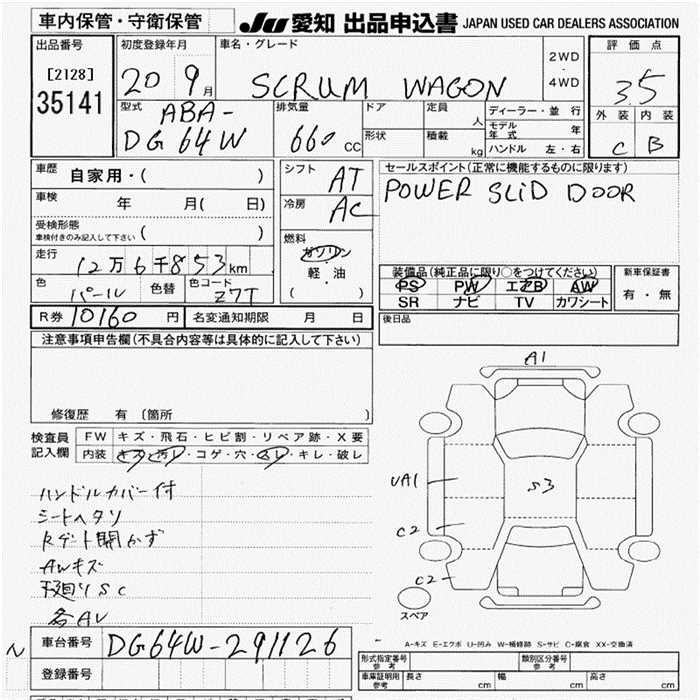 車内保管・守衛保管
JU 愛知 出品申込書 JAPAN USED CAR DEALERS ASSOCIATION
出品番号
[2128]
35141
初度登録年月
20 9月
車名・グレード
SCRUM WAGON
2WD
4WD
評価点
3.5
外装 内装
C B
型式
ABA-
DG64W
排気量
660 CC
ドア
形状
定員 人
積載 kg
ディーラー・並行
モデル年式 年
ハンドル 左・右
車歴
自家用・( )
車検 年 月( 日)
受検形態
車検付きのみ記入して下さい ( )
走行
12万6千853km
色 パール 色替 色コード Z7T
シフト AT
冷房 AC
燃料
ガソリン
軽・油
( )
セールスポイント(正常に機能するものに限ります)
POWER SLiD DOOR
装備品(純正品に限り○をつけてください)
PS PW エアB AW
SR ナビ TV カワシート
新車保証書
有・無
R券 10160 円 名変通知期限 月 日
後日品
注意事項申告欄(不具合内容等は具体的に記入して下さい)
修復歴 有 〔箇所 〕
検査員記入欄
FW キズ・飛石・ヒビ割・リペア跡・X要
内装 キズ・汚レ・コゲ・穴・スレ・キレ・破レ
ハンドルカバー付
シートヘタリ
Rゲート開かず
AWキズ
下廻りSC
各AU
A1
UA1
S3
C2
C2
スペア
A-キズ E-エクボ U-凹み W-補修跡 S-サビ C-腐食 XX-交換済
車台番号 DG64W-291126
登録番号
形式指定番号 参考
類別区分番号 参考
車庫証明用 参考 長さ cm 幅 cm 高さ cm